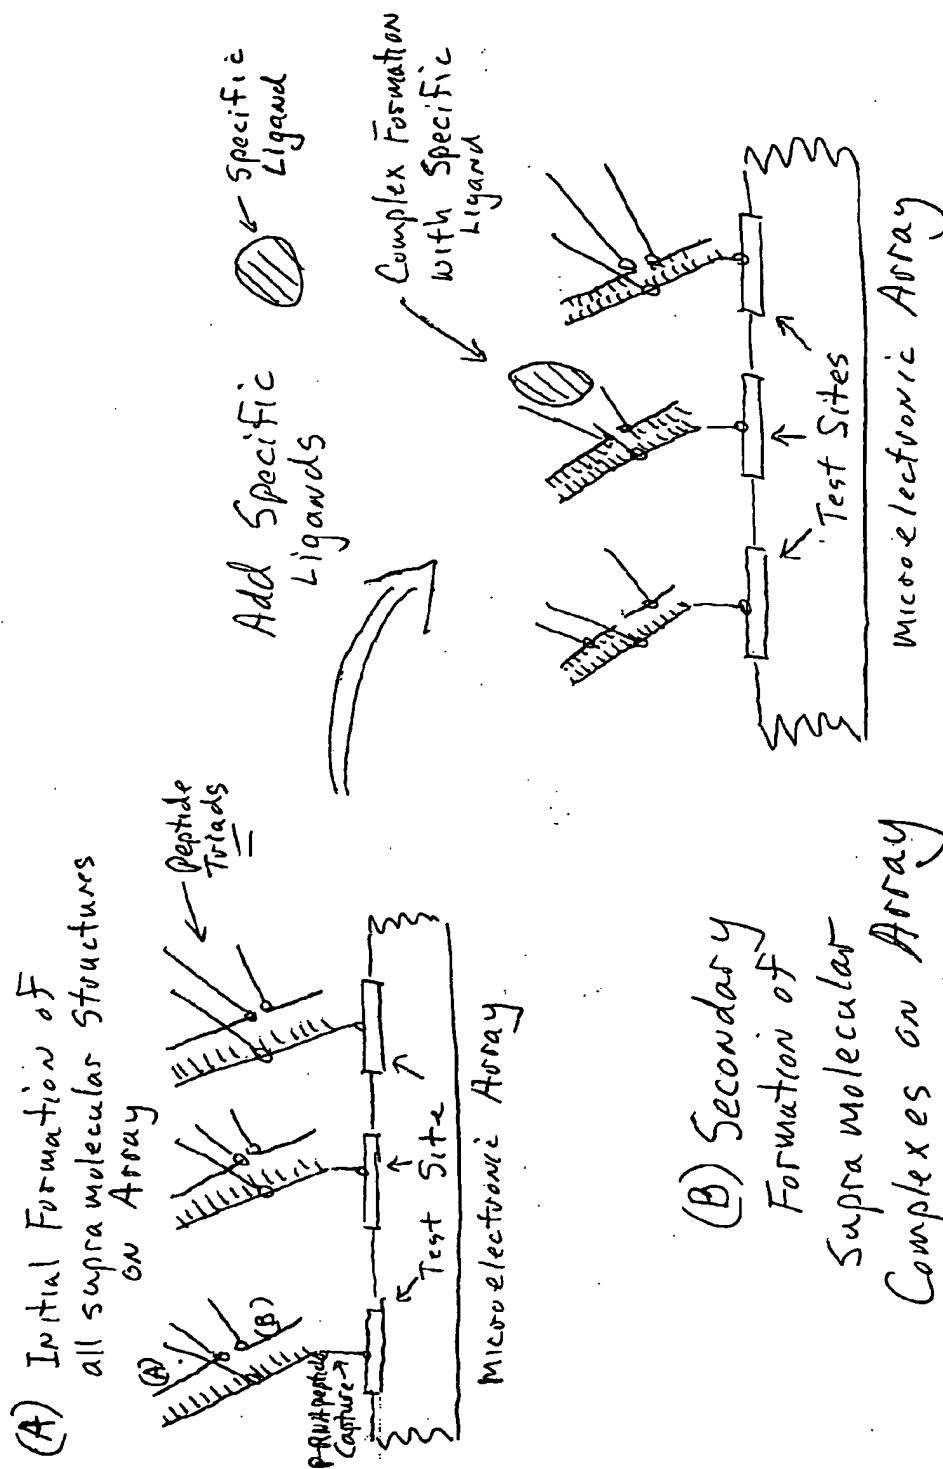 (A) Initial Formation of
all supra molecular structures
on Array
Peptide
Triads
(A)
(B)
P-RNA peptide
Capture
Test Site
Microelectronic Array
Add Specific
Ligands
Specific
Ligand
Complex Formation
with Specific
Ligand
Test Sites
Microelectronic Array
(B) Secondary
Formation of
Supra molecular
Complexes on Array